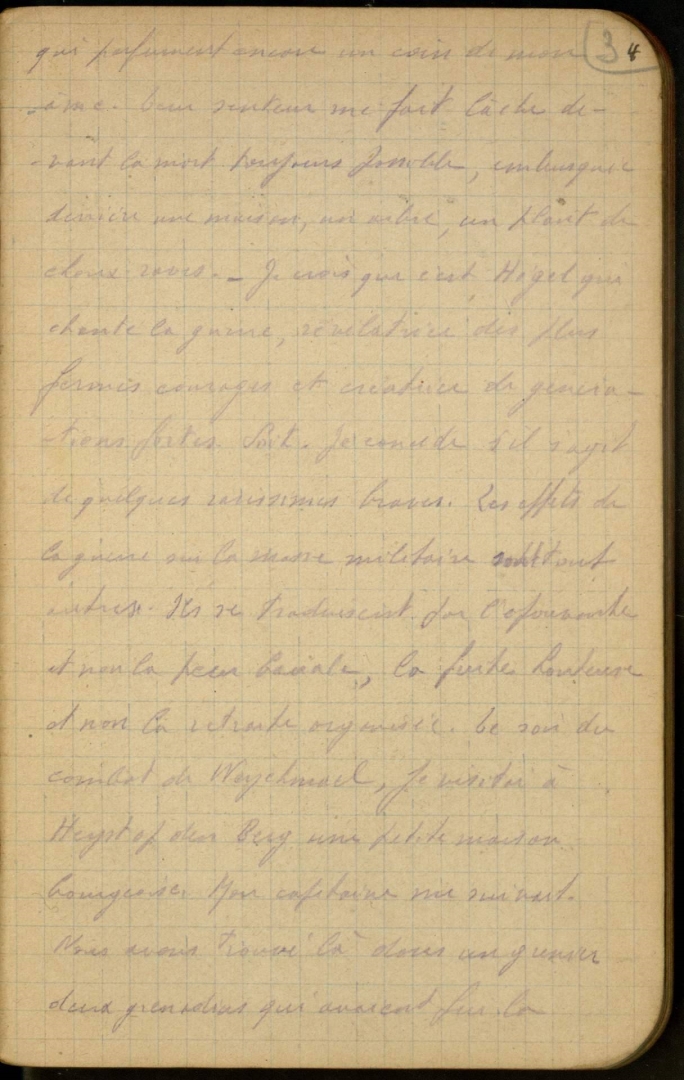 34
qui parfument encore un coin de mon
âme. Leur senteur me fait lâche de-
-vant la mort toujours possible, embusquée
derrière une maison, un arbre, un plant de
choux raves. - Je crois que c'est Hégel qui
chante la guerre, révélatrice des plus
fermes courages et créatrice de généra-
-tions fortes. Soit. Je concède s'il s'agit
de quelques rarissimes braves. Les effets de
la guerre sur la masse militaire sont tout
autres. Ils se traduisent par l'épouvante
et non la peur banale, la fuite honteuse
et non la retraite organisée. Le soir du
combat de Werchter, je visitai à
Heyst op den Berg une petite maison
bourgeoise. Mon capitaine me suivait.
Nous avons trouvé là dans un grenier
deux grenadiers qui avaient fui la